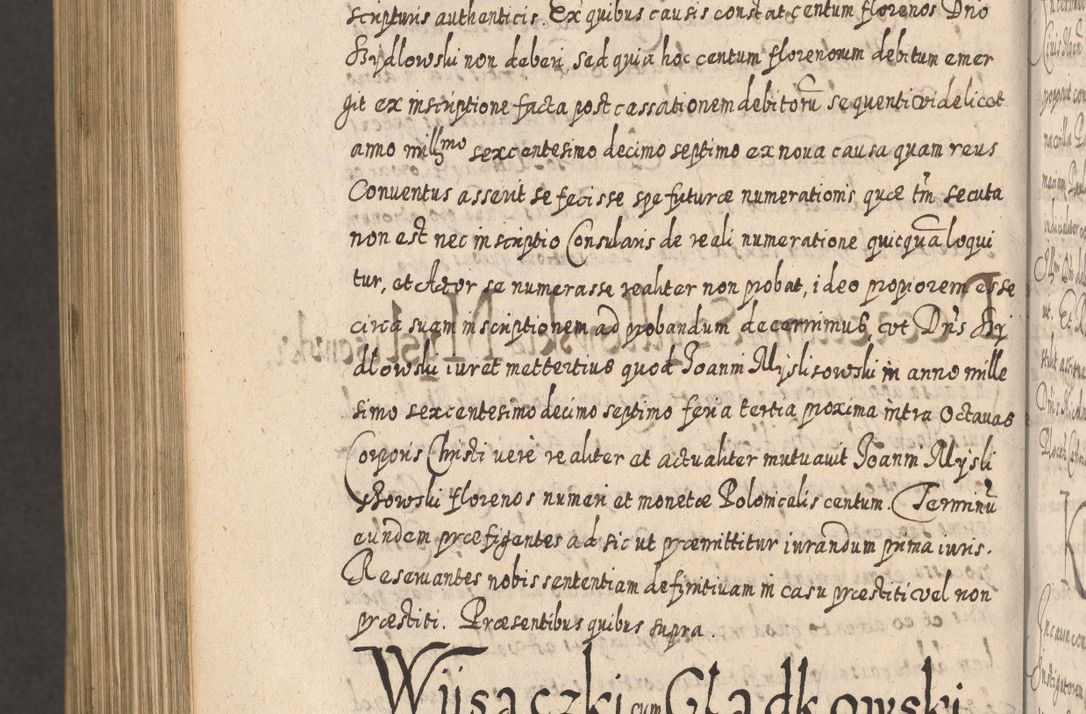 scripturis authenticis. Ex quibus causis constat centum florenos Dno
Brydlowski non deberi, sed quia hoc centum florenorum debitum emer
git ex inscriptione facta post cassationem debitorū sequenti videlicet
anno millmo sexcentesimo decimo septimo ex noua causa quam reus
Conuentus asserit se fecisse spe futuræ numerationis, quæ tm̄ secuta
non est nec inscriptio Consularis de reali numeratione quicquā loqui
tur, et Actor se numerasse realiter non probat, ideo propiorem esse
circa suam inscriptionem ad probandum decernimus, vt Dn̄s Bry
dlowski iuret mettertius quod Joanni Myslisowski in anno mille
simo sexcentesimo decimo septimo feria tertia proxima intra Octauas
Corporis Christi verè realiter et actualiter mutuauit Joanni Mysli
showski florenos numeri et monetæ Polonicalis centum. Terminū
eundem præfigentes ad sic ut præmittitur iurandum prima iuris.
Reseruantes nobis sententiam definitiuam in casu præstiti vel non
præstiti. Præsentibus quibus supra.
Wiisaczki cum Gładkowski